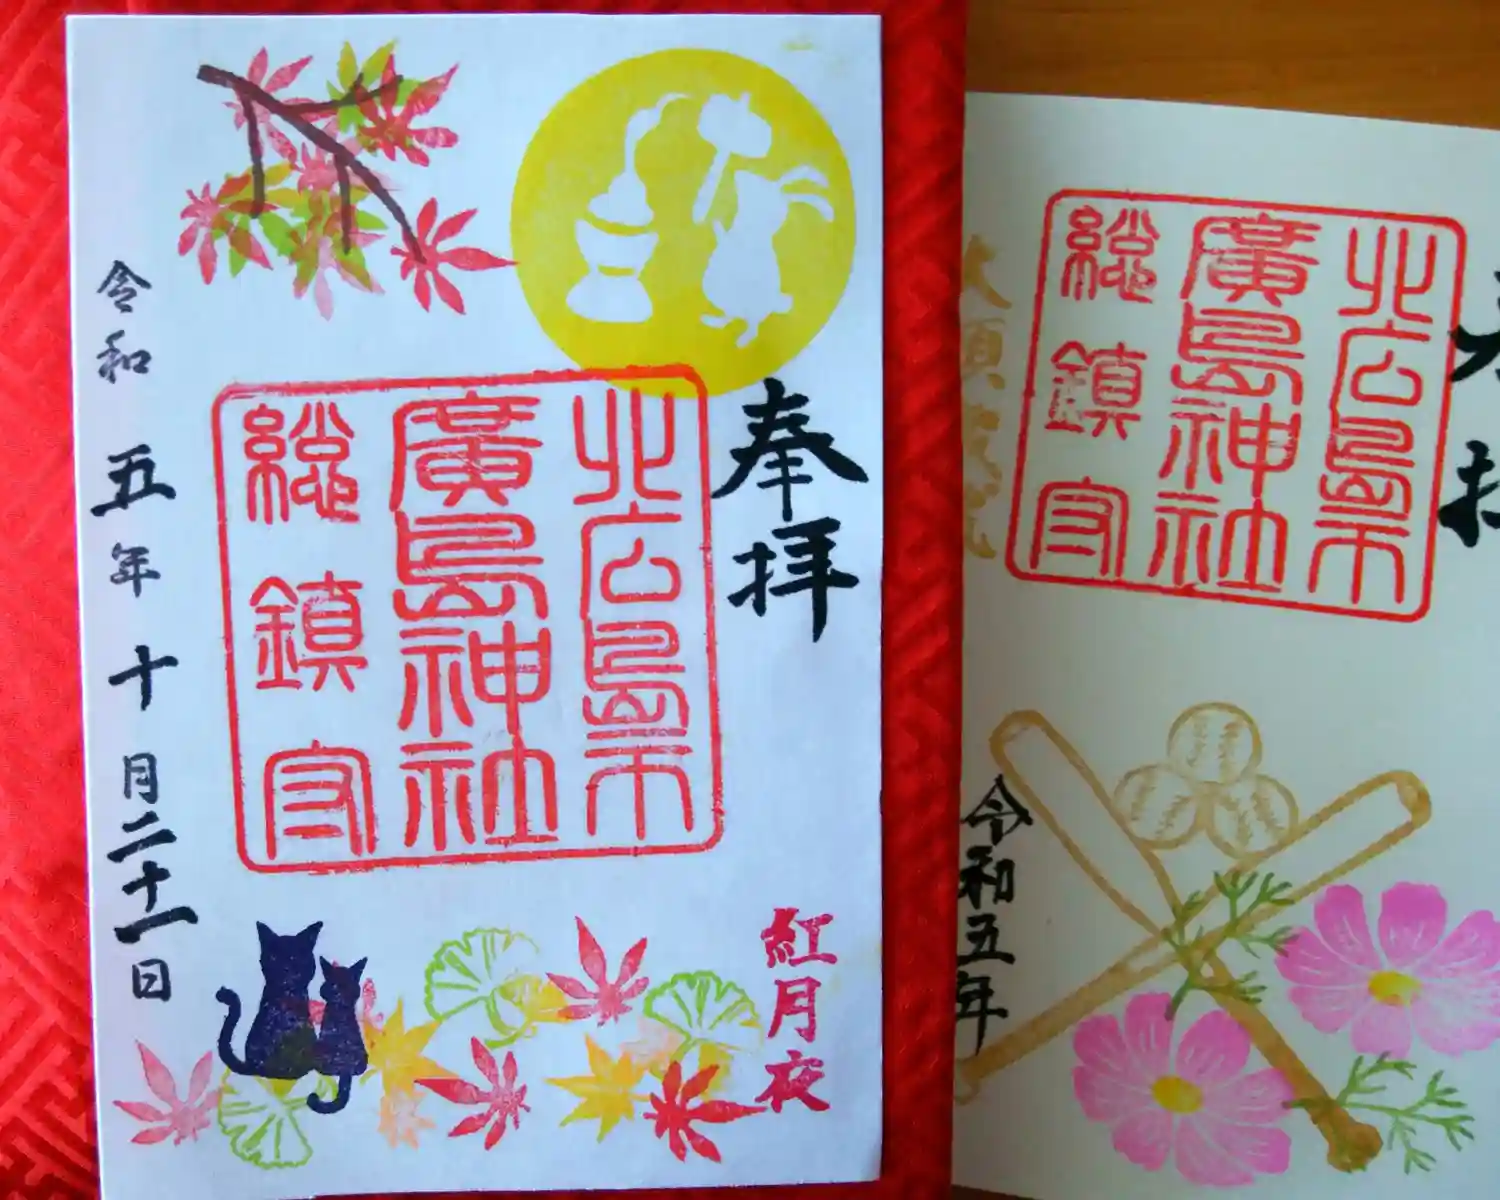 奉拝
北広島市
廣島神社
総鎮守
紅月夜
令和五年十月二十一日
北広島市
廣島神社
総鎮守
令和五年